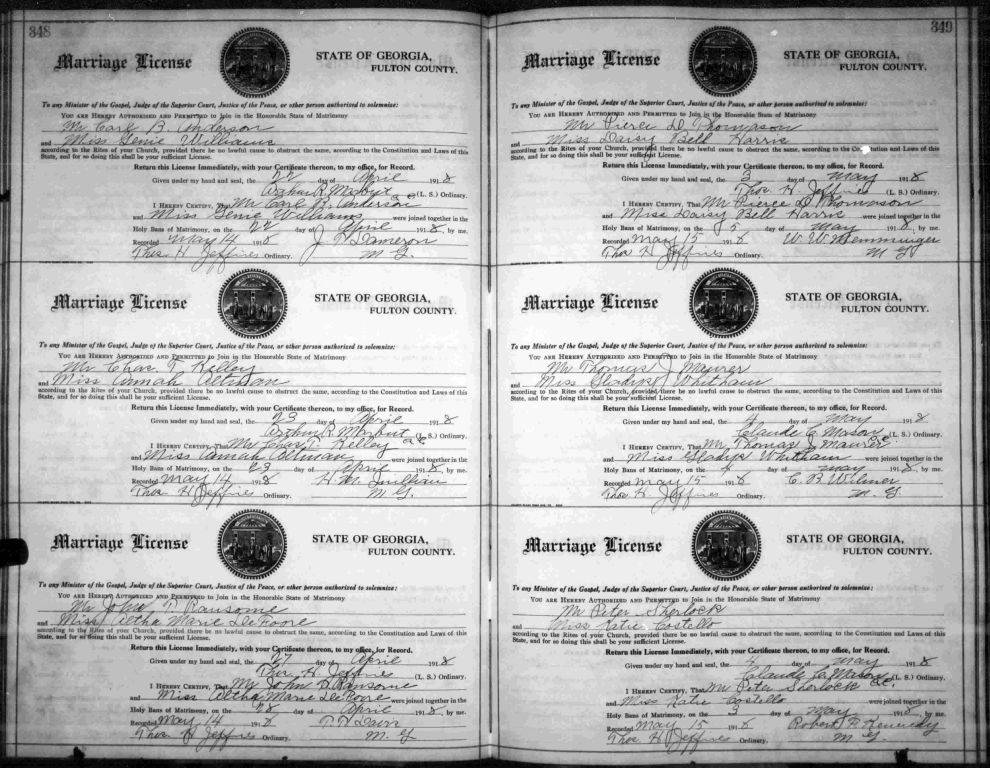 348
Marriage License
STATE OF GEORGIA,
FULTON COUNTY.
To any Minister of the Gospel, Judge of the Superior Court, Justice of the Peace, or other person authorized to solemnize:
YOU ARE HEREBY AUTHORIZED AND PERMITTED to Join in the Honorable State of Matrimony
Mr Carl B. Anderson
and Miss Genie Williams
according to the Rites of your Church, provided there be no lawful cause to obstruct the same, according to the Constitution and Laws of this
State, and for so doing this shall be your sufficient License.
Return this License Immediately, with your Certificate thereon, to my office, for Record.
Given under my hand and seal, the 22 day of April 1918
Arthur R. Marbut (L. S.) Ordinary.
I HEREBY CERTIFY, That Mr Carl B. Anderson
and Miss Genie Williams were joined together in the
Holy Bans of Matrimony, on the 22 day of April 1918, by me.
Recorded May 14 1918 J
Thos. H. Jeffries Ordinary. M. G.
Marriage License
STATE OF GEORGIA,
FULTON COUNTY.
To any Minister of the Gospel, Judge of the Superior Court, Justice of the Peace, or other person authorized to solemnize:
YOU ARE HEREBY AUTHORIZED AND PERMITTED to Join in the Honorable State of Matrimony
Mr Chas. T. Kelley
and Miss Annah Altman
according to the Rites of your Church, provided there be no lawful cause to obstruct the same, according to the Constitution and Laws of this
State, and for so doing this shall be your sufficient License.
Return this License Immediately, with your Certificate thereon, to my office, for Record.
Given under my hand and seal, the 23 day of April 1918
Arthur R. Marbut (L. S.) Ordinary.
I HEREBY CERTIFY, That Mr Chas. T. Kelley
and Miss Annah Altman were joined together in the
Holy Bans of Matrimony, on the 23 day of April 1918, by me.
Recorded May 14 1918 H. M. Quillian
Thos. H. Jeffries Ordinary. M. G.
Marriage License
STATE OF GEORGIA,
FULTON COUNTY.
To any Minister of the Gospel, Judge of the Superior Court, Justice of the Peace, or other person authorized to solemnize:
YOU ARE HEREBY AUTHORIZED AND PERMITTED to Join in the Honorable State of Matrimony
Mr John D. Ransome
and Miss Altha Marie DeFoore
according to the Rites of your Church, provided there be no lawful cause to obstruct the same, according to the Constitution and Laws of this
State, and for so doing this shall be your sufficient License.
Return this License Immediately, with your Certificate thereon, to my office, for Record.
Given under my hand and seal, the 27 day of April 1918
Thos. H. Jeffries (L. S.) Ordinary.
I HEREBY CERTIFY, That Mr John D. Ransome
and Miss Altha Marie DeFoore were joined together in the
Holy Bans of Matrimony, on the 28 day of April 1918, by me.
Recorded May 14 1918
Thos. H. Jeffries Ordinary. M. G.
349
Marriage License
STATE OF GEORGIA,
FULTON COUNTY.
To any Minister of the Gospel, Judge of the Superior Court, Justice of the Peace, or other person authorized to solemnize:
YOU ARE HEREBY AUTHORIZED AND PERMITTED to Join in the Honorable State of Matrimony
Mr Pierce D. Thompson
and Miss Daisy Bell Harris
according to the Rites of your Church, provided there be no lawful cause to obstruct the same, according to the Constitution and Laws of this
State, and for so doing this shall be your sufficient License.
Return this License Immediately, with your Certificate thereon, to my office, for Record.
Given under my hand and seal, the 3 day of May 1918
Thos. H. Jeffries (L. S.) Ordinary.
I HEREBY CERTIFY, That Mr Pierce D. Thompson
and Miss Daisy Bell Harris were joined together in the
Holy Bans of Matrimony, on the 5 day of May 1918, by me.
Recorded May 15 1918 W. W. Memminger
Thos. H. Jeffries Ordinary. M. G.
Marriage License
STATE OF GEORGIA,
FULTON COUNTY.
To any Minister of the Gospel, Judge of the Superior Court, Justice of the Peace, or other person authorized to solemnize:
YOU ARE HEREBY AUTHORIZED AND PERMITTED to Join in the Honorable State of Matrimony
Mr Thomas J. Maurer
and Miss Gladys Whitham
according to the Rites of your Church, provided there be no lawful cause to obstruct the same, according to the Constitution and Laws of this
State, and for so doing this shall be your sufficient License.
Return this License Immediately, with your Certificate thereon, to my office, for Record.
Given under my hand and seal, the 4 day of May 1918
Claude C. Mason (L. S.) Ordinary.
I HEREBY CERTIFY, That Mr Thomas J Maurer
and Miss Gladys Whitham were joined together in the
Holy Bans of Matrimony, on the 4 day of May 1918, by me.
Recorded May 15 1918 C. B. Wilmer
Thos. H. Jeffries Ordinary. M. G.
Marriage License
STATE OF GEORGIA,
FULTON COUNTY.
To any Minister of the Gospel, Judge of the Superior Court, Justice of the Peace, or other person authorized to solemnize:
YOU ARE HEREBY AUTHORIZED AND PERMITTED to Join in the Honorable State of Matrimony
Mr Peter Sherlock
and Miss Katie Costello
according to the Rites of your Church, provided there be no lawful cause to obstruct the same, according to the Constitution and Laws of this
State, and for so doing this shall be your sufficient License.
Return this License Immediately, with your Certificate thereon, to my office, for Record.
Given under my hand and seal, the 4 day of May 1918
Claude C. Mason (L. S.) Ordinary.
I HEREBY CERTIFY, That Mr Peter Sherlock
and Miss Katie Costello were joined together in the
Holy Bans of Matrimony, on the day of May 1918, by me.
Recorded May 15 1918 Robert F. Kennedy
Thos. H. Jeffries Ordinary. M. G.